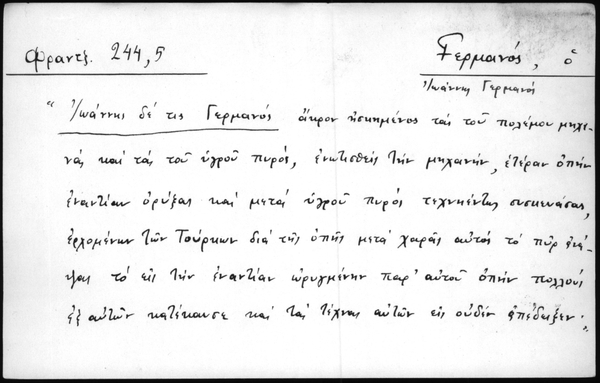 Φραντζ. 244,5
Γερμανός, ὁ
Ἰωάννης Γερμανός
"Ἰωάννης δέ τις Γερμανός ἄκρον ἠσκημένος τάς τοῦ πολέμου μηχα-
νάς καί τάς τοῦ ὑγροῦ πυρός, ἐνωτισθείς τήν μηχανήν, ἑτέραν ὀπήν
ἐναντίαν ὀρύξας καί μετά ὑγροῦ πυρός τεχνηέντως συσκευάσας,
ἐρχομένων τῶν Τούρκων διά τῆς ὀπῆς μετά χαρᾶς αὐτός τό πῦρ ἀνά-
ψας τό εἰς τήν ἐναντίαν ὠρυγμένην παρ' αὐτοῦ ὀπήν πολλούς
ἐξ αὐτῶν κατέκαυσε καί τάς τέχνας αὐτῶν εἰς οὐδέν ἀπέδειξεν."